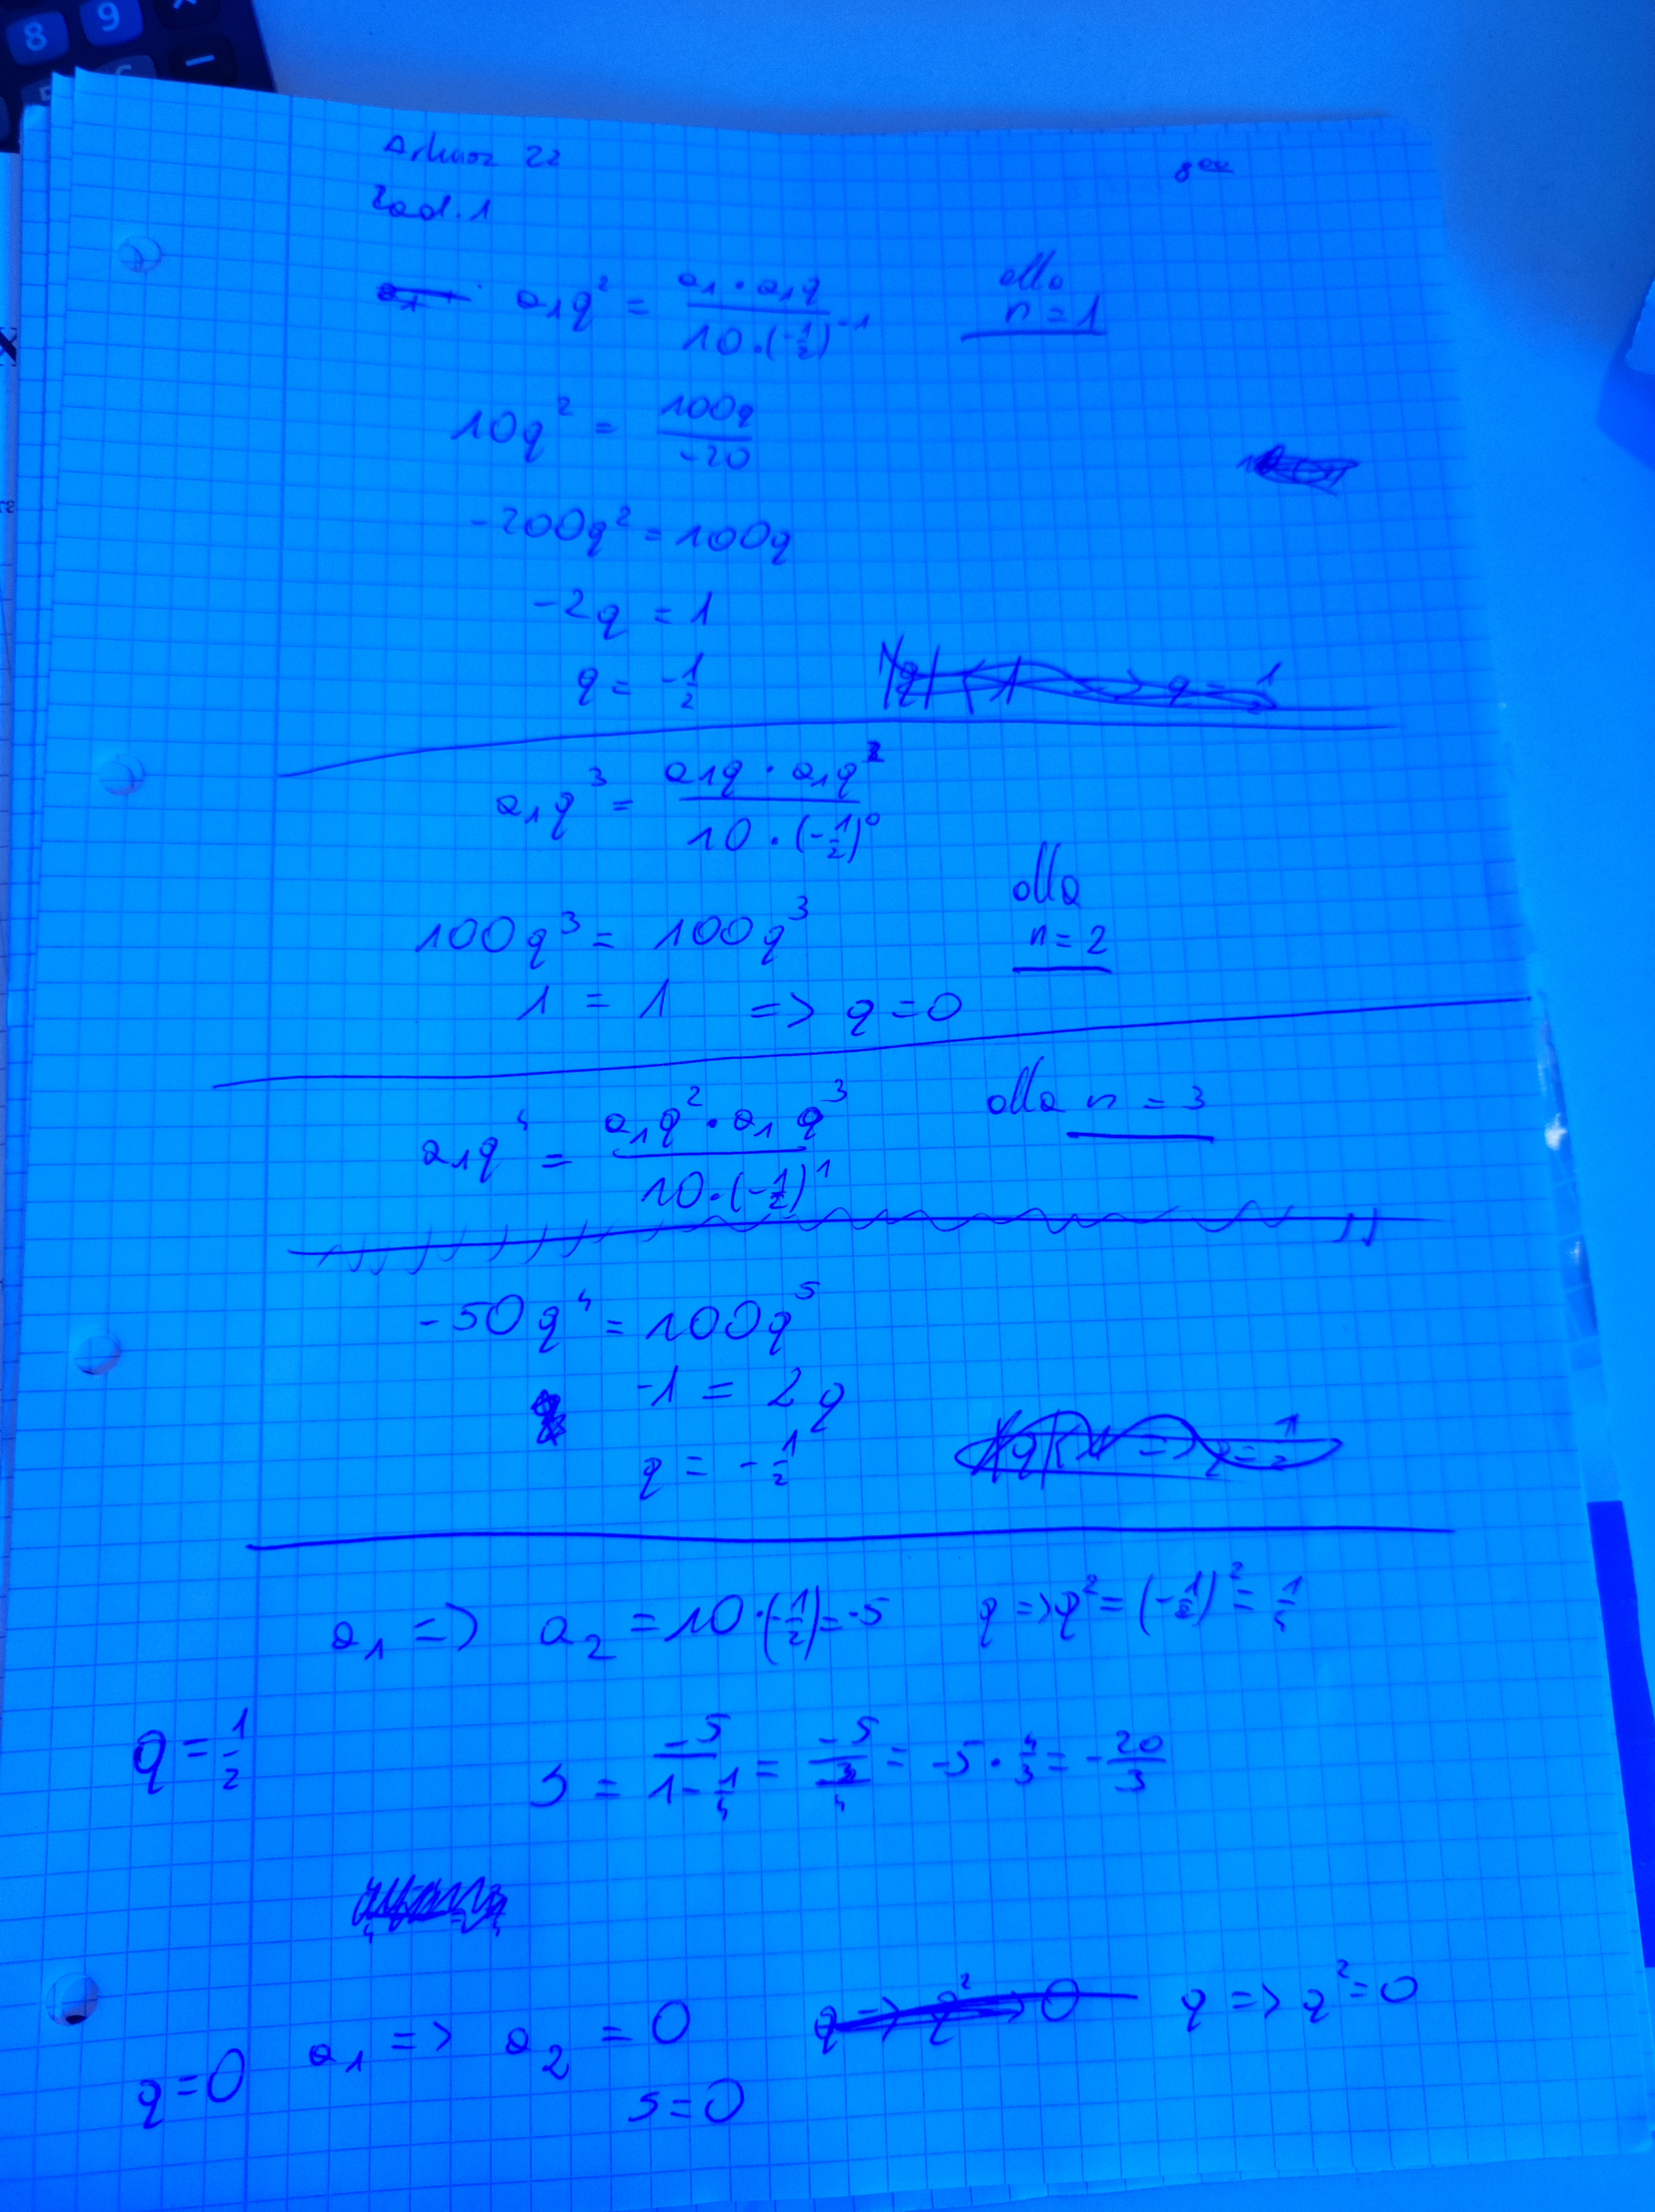 8 9
Arkusz 22
Zad. 1
a₁q² = (a₁ · a₁q) / (10 · (-1/2)⁻¹) dla n = 1
10q² = 100q / -20
-200q² = 100q
-2q = 1
q = -1/2
a₁q³ = (a₁q · a₁q²) / (10 · (-1/2)⁰)
dla n = 2
100q³ = 100q³
1 = 1 => q = 0
a₁q⁴ = (a₁q² · a₁q³) / (10 · (-1/2)¹) dla n = 3
-50q⁴ = 100q⁵
-1 = 2q
q = -1/2
a₁ => a₂ = 10 · (-1/2) = -5 q => q² = (-1/2)² = 1/4
q = 1/2
S = -5 / (1 - 1/4) = -5 / (3/4) = -5 · 4/3 = -20/3
q = 0 a₁ => a₂ = 0 q => q² = 0
S = 0